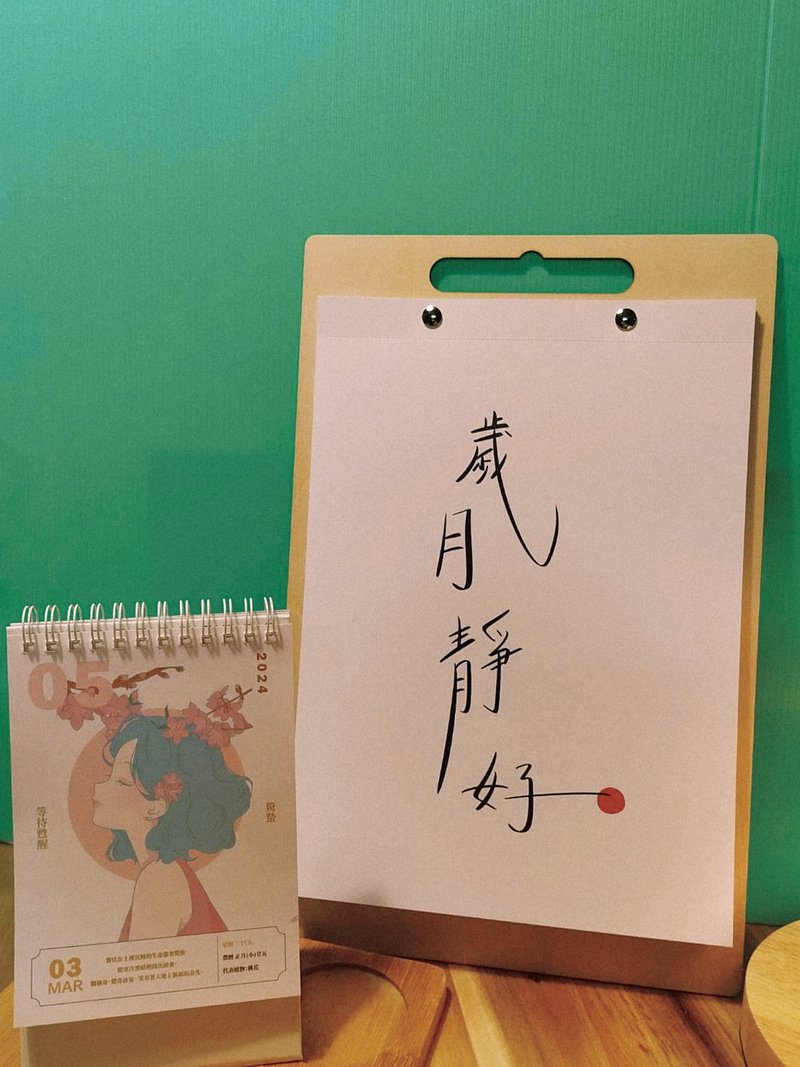 歲
月
靜
好
05
2024
等待甦醒
驚蟄
03
MAR
星期二TUE.
農曆 正月(小)廿五
代表植物:桃花